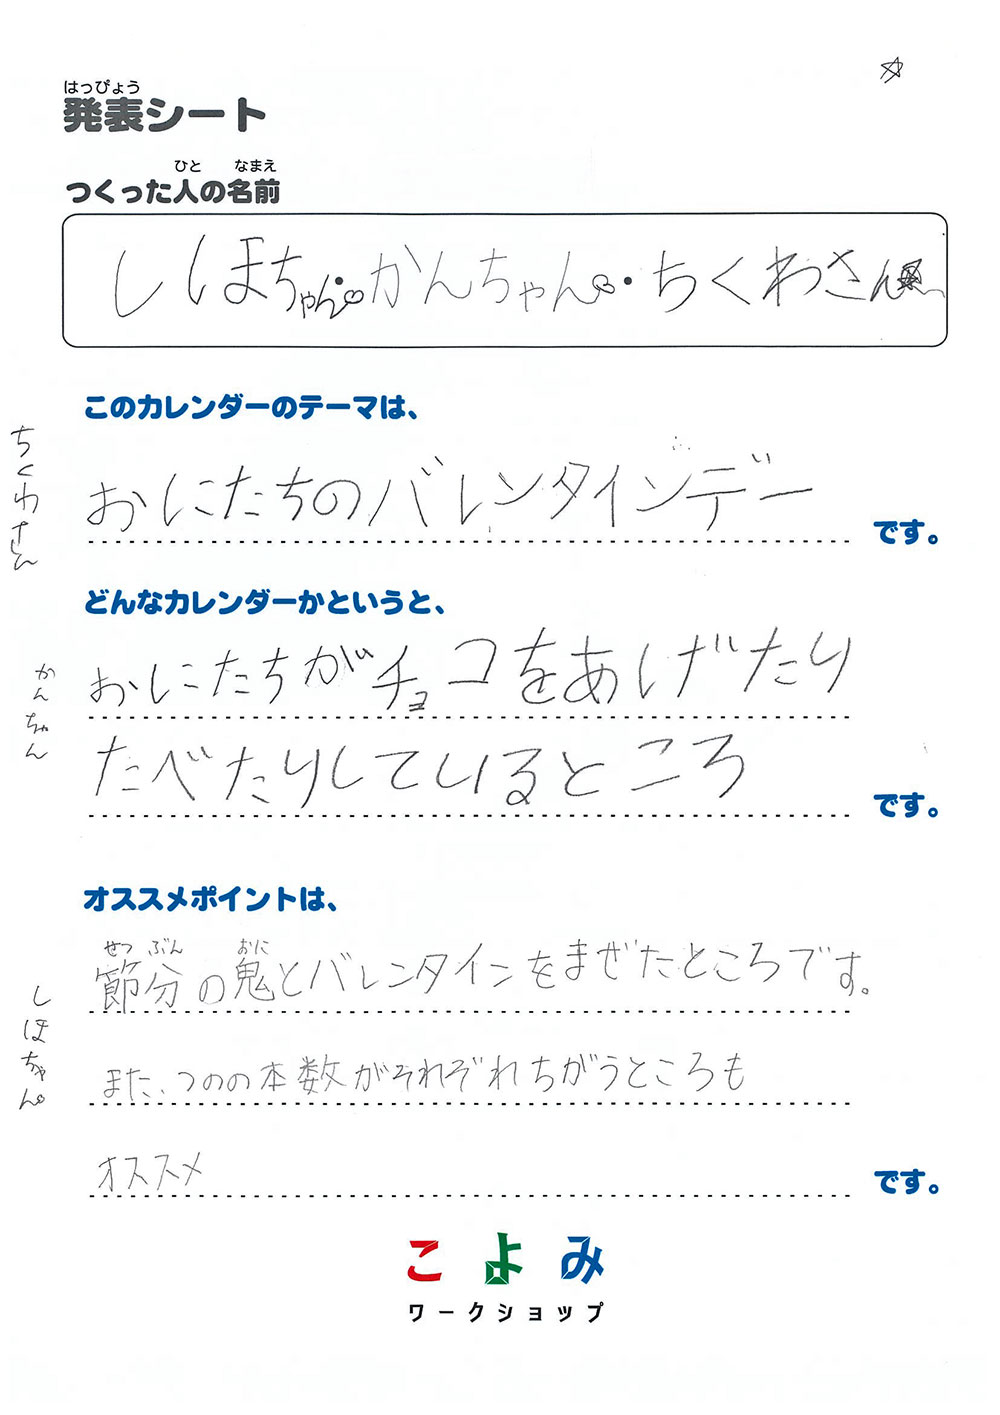 はっぴょう
発表シート
ひと なまえ
つくった人の名前
しほちゃん・かんちゃん・ちくわさん
このカレンダーのテーマは、
ちくわさん
おにたちのバレンタインデー
です。
どんなカレンダーかというと、
かんちゃん
おにたちがチョコをあげたり
たべたりしているところ
です。
オススメポイントは、
しほちゃん
せつ ぶん おに
節分の鬼とバレンタインをまぜたところです。
また、つのの本数がそれぞれちがうところも
オススメ
です。
こよみ
ワークショップ